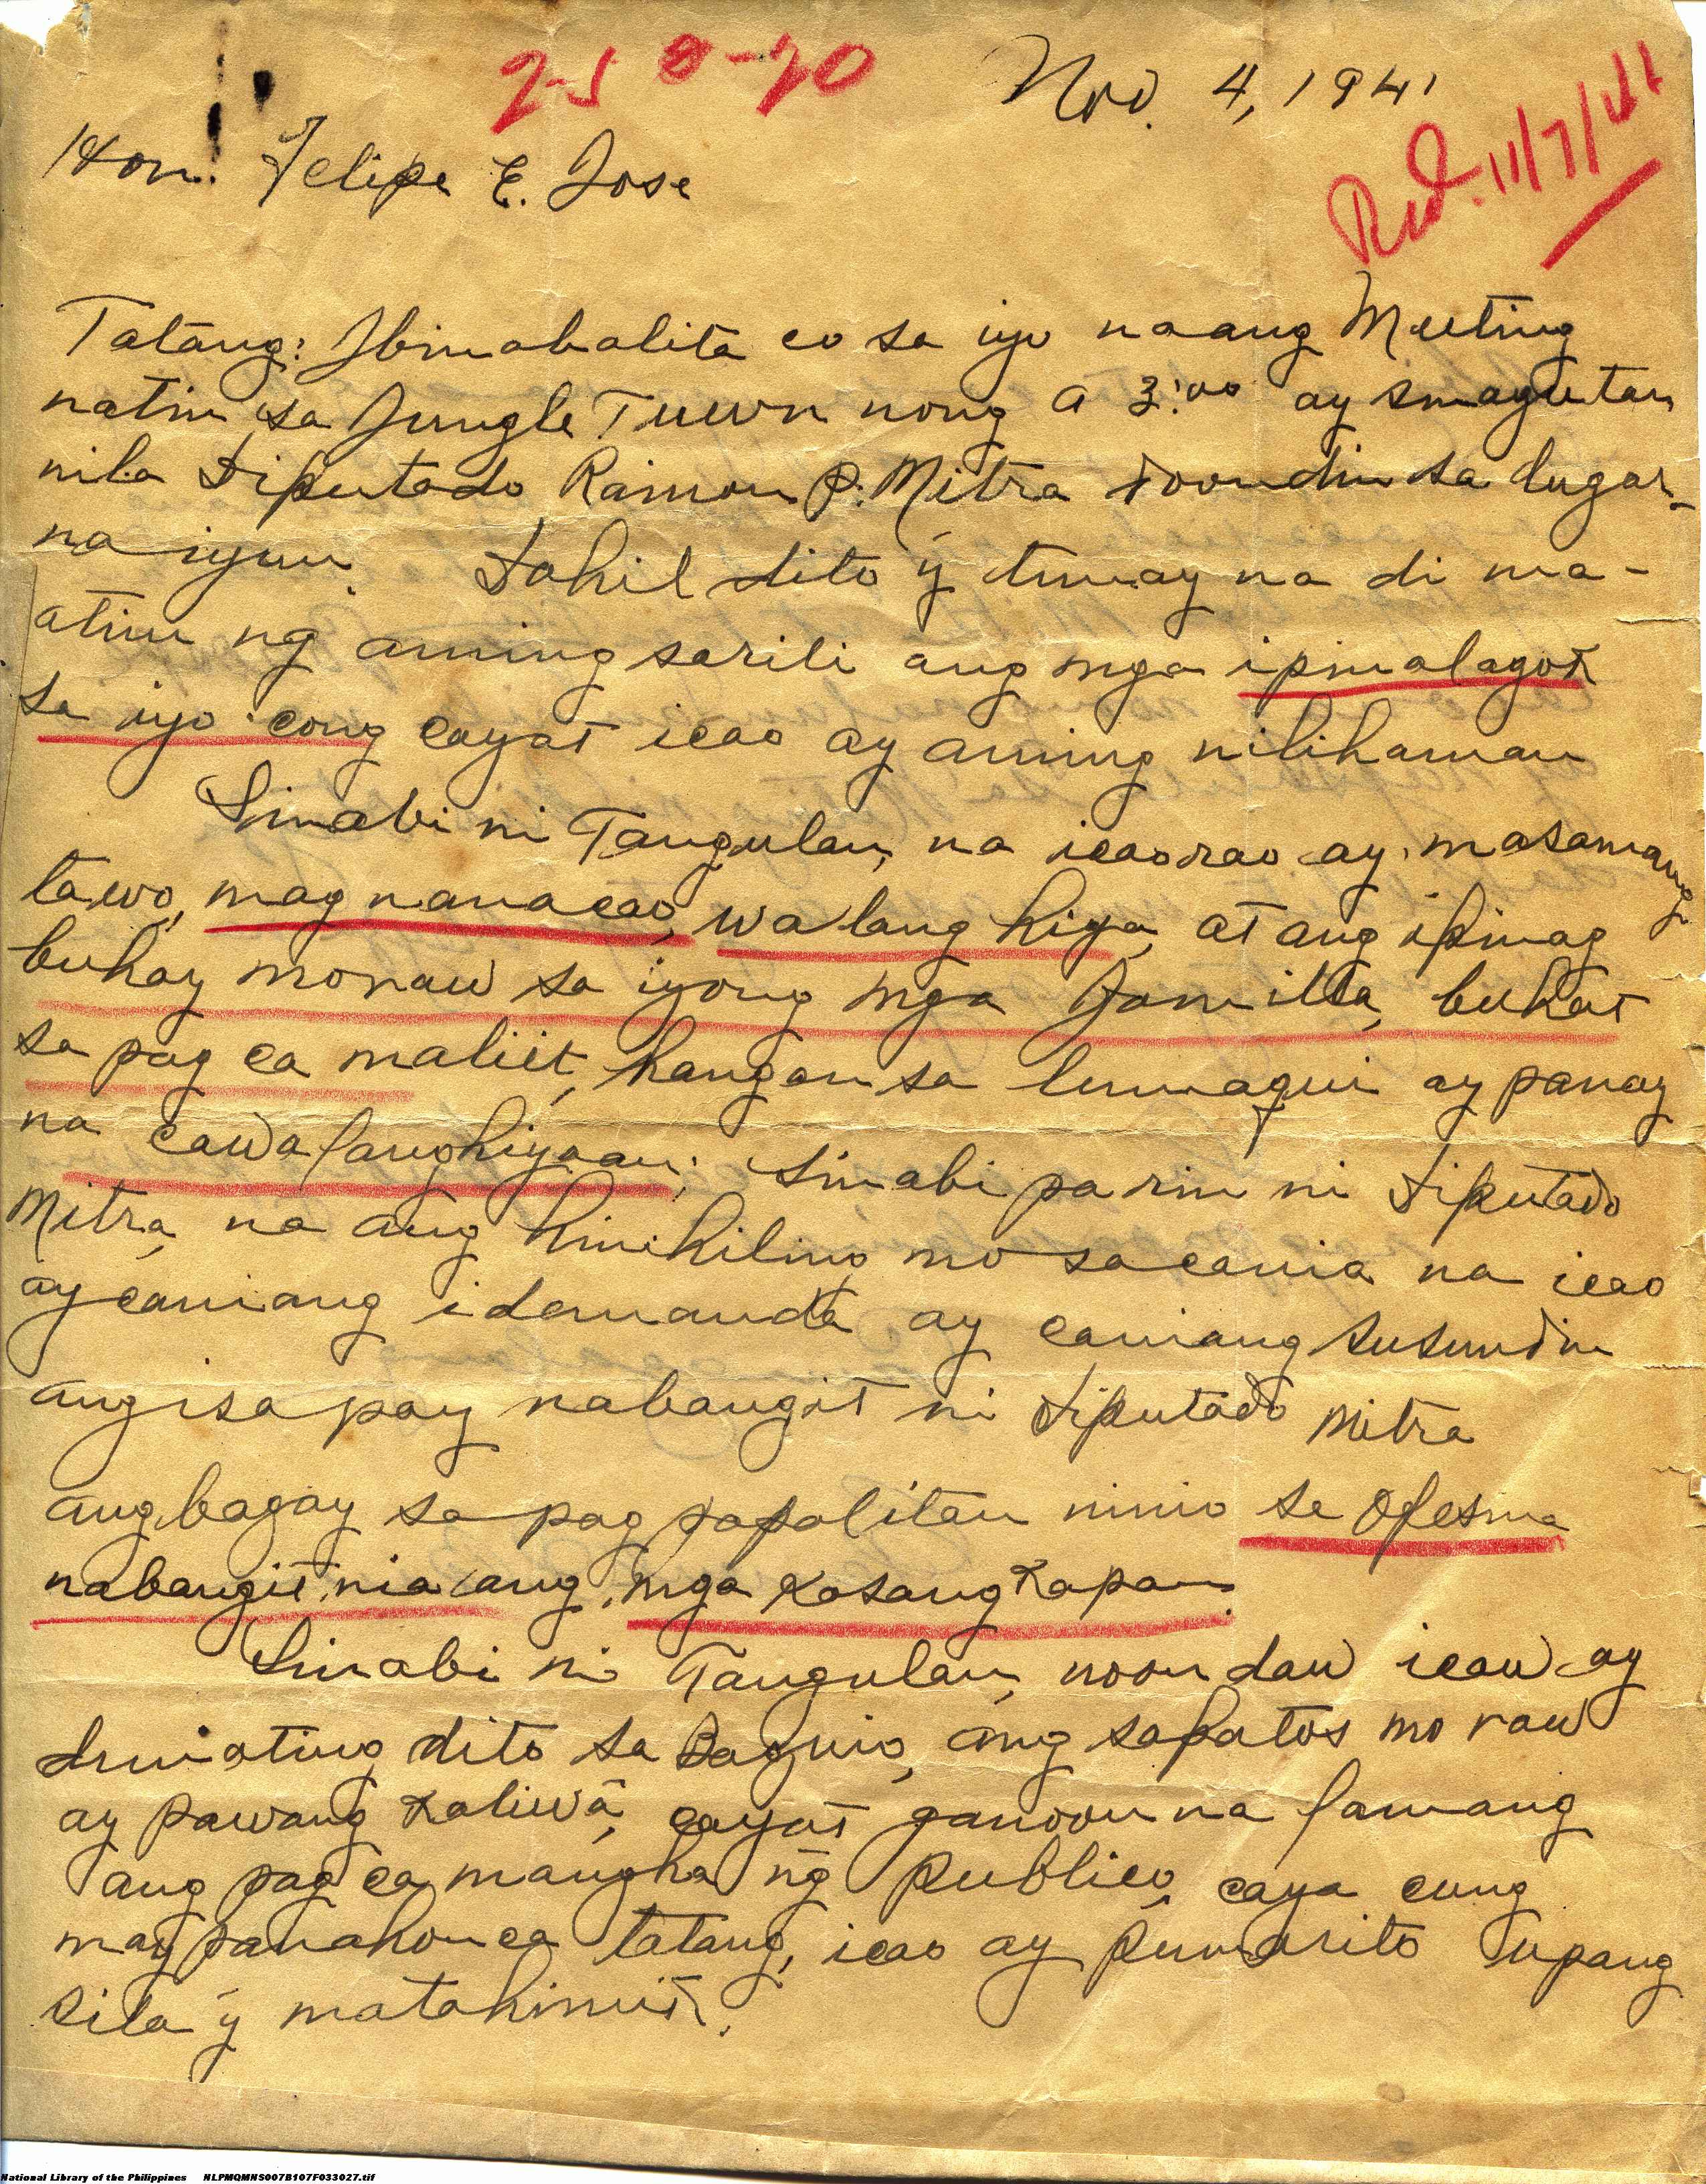 2-5 8-20
Nov. 4, 1941
Rcd. 11/7/41
Hon. Felipe E. Jose
Tatang: Ibinabalita co sa iyo na ang Meeting
natin sa Jungle Tuwn nong a 3:00 ay sinagutan
nila Diputado Ramon P. Mitra doondin sa lugar
na iyun. Dahil dito'y tunay na di ma-
atim ng aming sarili ang mga ipinalagok
sa iyo cong cayat icao ay aming nilihaman
Sinabi ni Tangulan, na icao rao ay masamang
tawo, mag nanacao, walang hiya, at ang ipinag
buhay monaw sa iyong mga familia, buhat
sa pag ca maliit, hangan sa lumaqui ay panay
na cawalanghiyaan; Sinabi pa rin ni Diputado
Mitra, na ang hinihiling mo sa cania na icao
ay caniang idemanda ay caniang susundin
ang isa pay nabangit ni Diputado Mitra
ang bagay sa pag papalitan ninio se Ofesma
nabangit nia ang mga Kasangkapan.
Sinabi ni Tangulan, noon daw icaw ay
dumating dito sa Baguio, ang sapatos mo raw
ay pawang kaliwa, cayat ganoon na lamang
ang pag ca mangha ng publico, caya cung
may panahon ca tatang, icao ay pumarito upang
sila'y matahimik.
National Library of the Philippines NLPMQMNS007B107F033027.tif